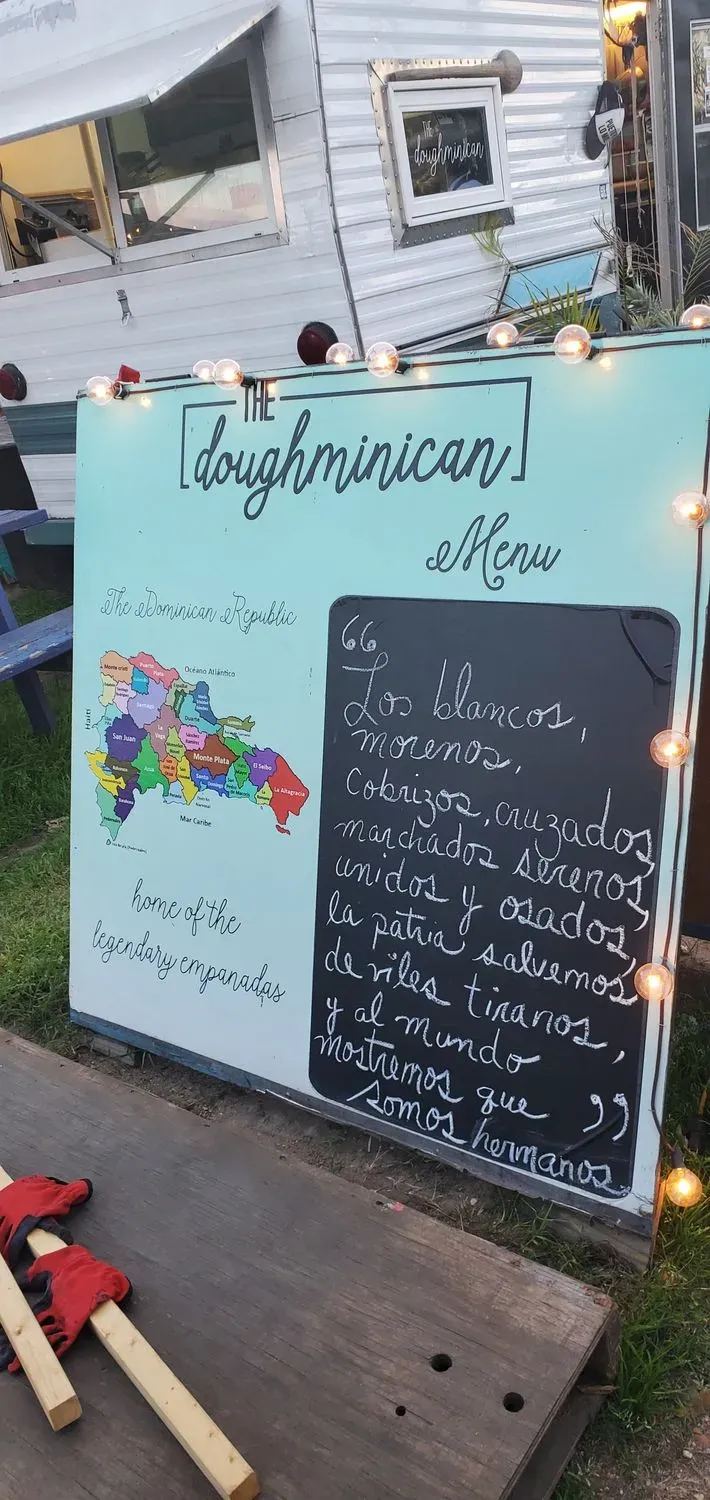 THE
doughminican
PUERTO
THE
doughminican
Menu
The Dominican Republic
Océano Atlántico
Monte cristi
Puerto Plata
Santiago
Duarte
La Vega
San Juan
Monte Plata
El Seibo
Azua
Santo Domingo
La Altagracia
Haití
Mar Caribe
home of the
legendary empanadas
“
Los blancos,
morenos,
Cobrizos, cruzados,
marchados serenos,
unidos y osados,
la patria salvemos,
de viles tiranos,
y al mundo
mostremos que
somos hermanos
”